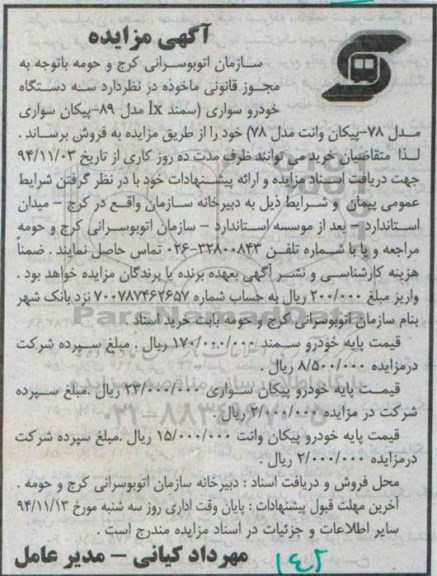 آگهی مزایده
سازمان اتوبوسرانی کرج و حومه باتوجه به
مجوز قانونی ماخوذه در نظردارد سه دستگاه
خودرو سواری (سمند lx مدل ۸۹-پیکان سواری
مدل ۷۸-پیکان وانت مدل ۷۸) خود را از طریق مزایده به فروش برساند .
لذا متقاضیان خرید می توانند ظرف مدت ده روز کاری از تاریخ ۹۴/۱۱/۰۳
جهت دریافت اسناد مزایده و ارائه پیشنهادات خود با در نظر گرفتن شرایط
عمومی پیمان و شرایط ذیل به دبیرخانه سازمان واقع در کرج - میدان
استاندارد - بعد از موسسه استاندارد - سازمان اتوبوسرانی کرج و حومه
مراجعه و یا با شماره تلفن ۳۲۸۰۰۸۴۳-۰۲۶ تماس حاصل نمایند . ضمناً
هزینه کارشناسی و نشر آگهی بعهده برنده یا برندگان مزایده خواهد بود .
واریز مبلغ ۲۰۰/۰۰۰ ریال به حساب شماره ۷۰۰۷۸۷۴۶۲۶۵۷ نزد بانک شهر
بنام سازمان اتوبوسرانی کرج و حومه بابت خرید اسناد .
قیمت پایه خودرو سمند ۱۷۰/۰۰۰/۰۰۰ ریال . مبلغ سپرده شرکت
درمزایده ۸/۵۰۰/۰۰۰ ریال .
قیمت پایه خودرو پیکان سواری ۲۳/۰۰۰/۰۰۰ ریال .مبلغ سپرده
شرکت در مزایده ۲/۰۰۰/۰۰۰ ریال .
قیمت پایه خودرو پیکان وانت ۱۵/۰۰۰/۰۰۰ ریال .مبلغ سپرده شرکت
درمزایده ۲/۰۰۰/۰۰۰ ریال .
محل فروش و دریافت اسناد : دبیرخانه سازمان اتوبوسرانی کرج و حومه .
آخرین مهلت قبول پیشنهادات : پایان وقت اداری روز سه شنبه مورخ ۹۴/۱۱/۱۳
سایر اطلاعات و جزئیات در اسناد مزایده مندرج است .
مهرداد کیانی - مدیر عامل
ParsNamadData